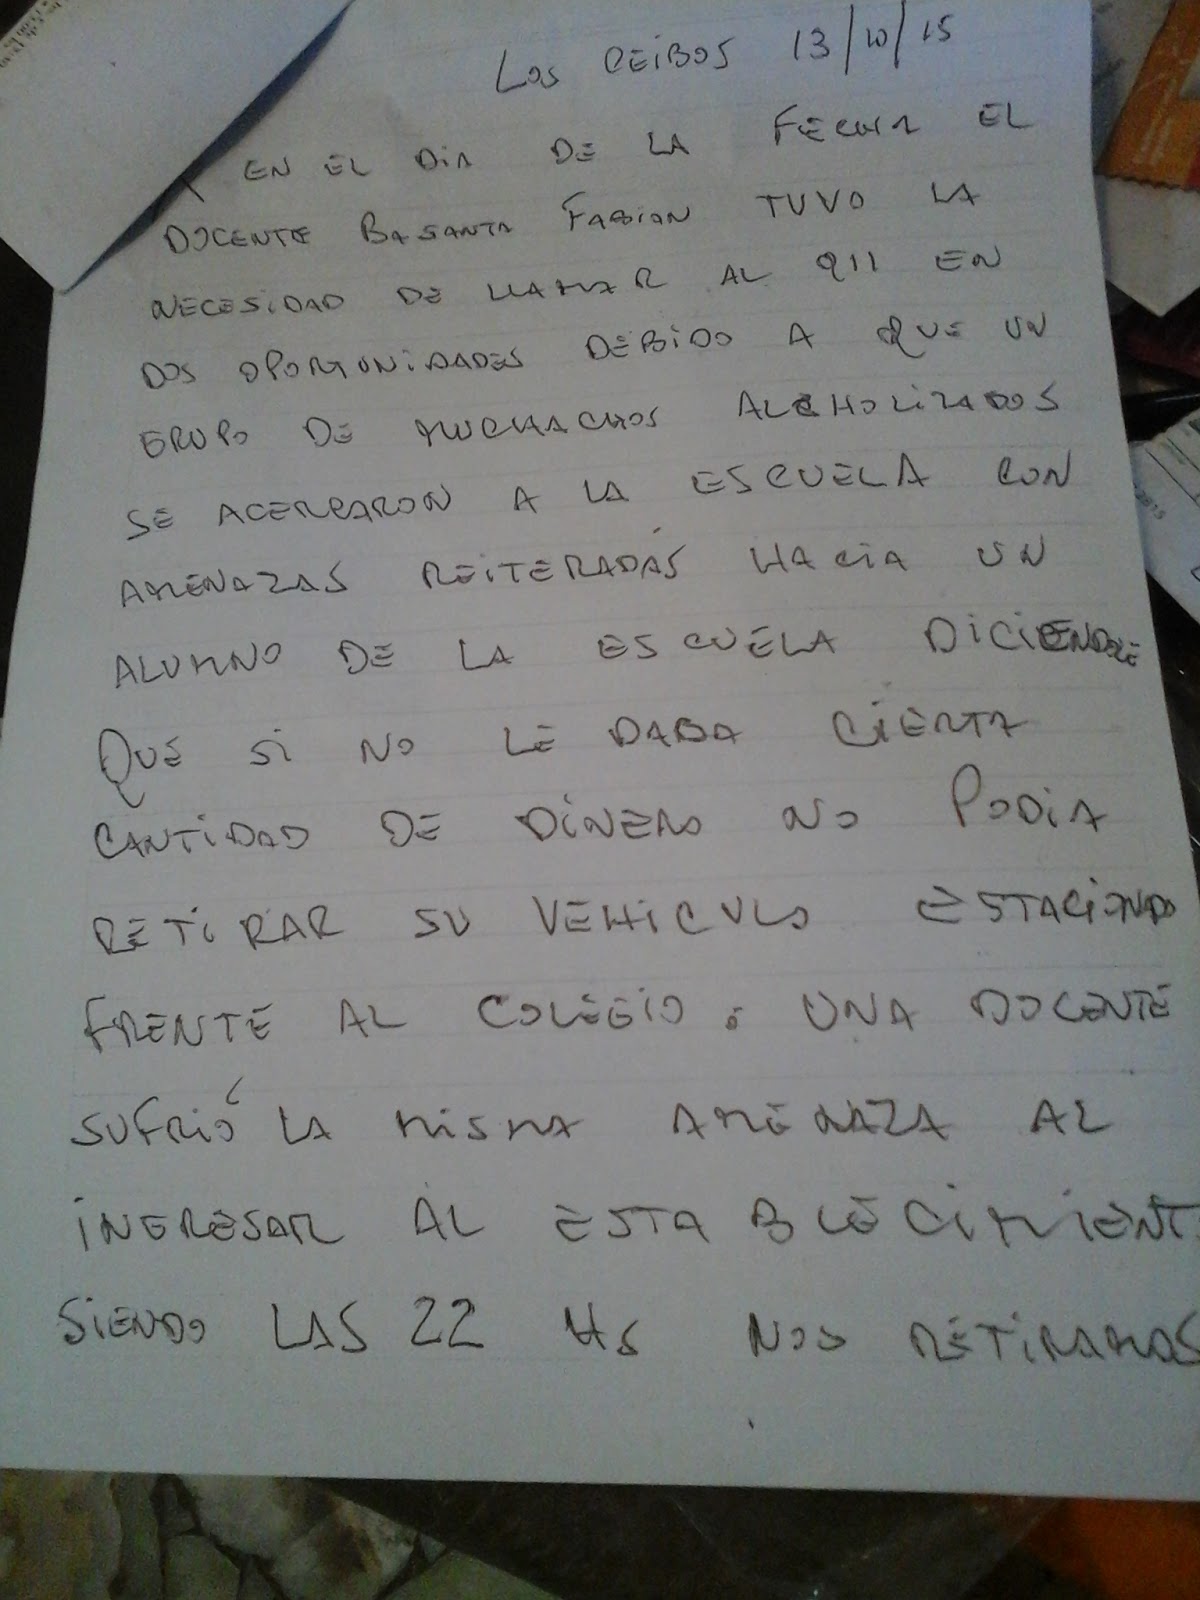 Los CEIBOS 13/10/15
EN EL DIA DE LA FECHA EL
DOCENTE BASANTA FABIAN TUVO LA
NECESIDAD DE LLAMAR AL 911 EN
DOS OPORTUNIDADES DEBIDO A QUE UN
GRUPO DE MUCHACHOS ALCHOLIZADOS
SE ACERCARON A LA ESCUELA CON
AMENAZAS REITERADAS HACIA UN
ALUMNO DE LA ESCUELA DICIENDOLE
QUE SI NO LE DABA CIERTA
CANTIDAD DE DINERO NO PODIA
RETIRAR SU VEHICULO ESTACIONADO
FRENTE AL COLEGIO. UNA DOCENTE
SUFRIÓ LA MISMA AMENAZA AL
INGRESAR AL ESTABLECIMIENT
SIENDO LAS 22 HS NOS RETIRAMOS